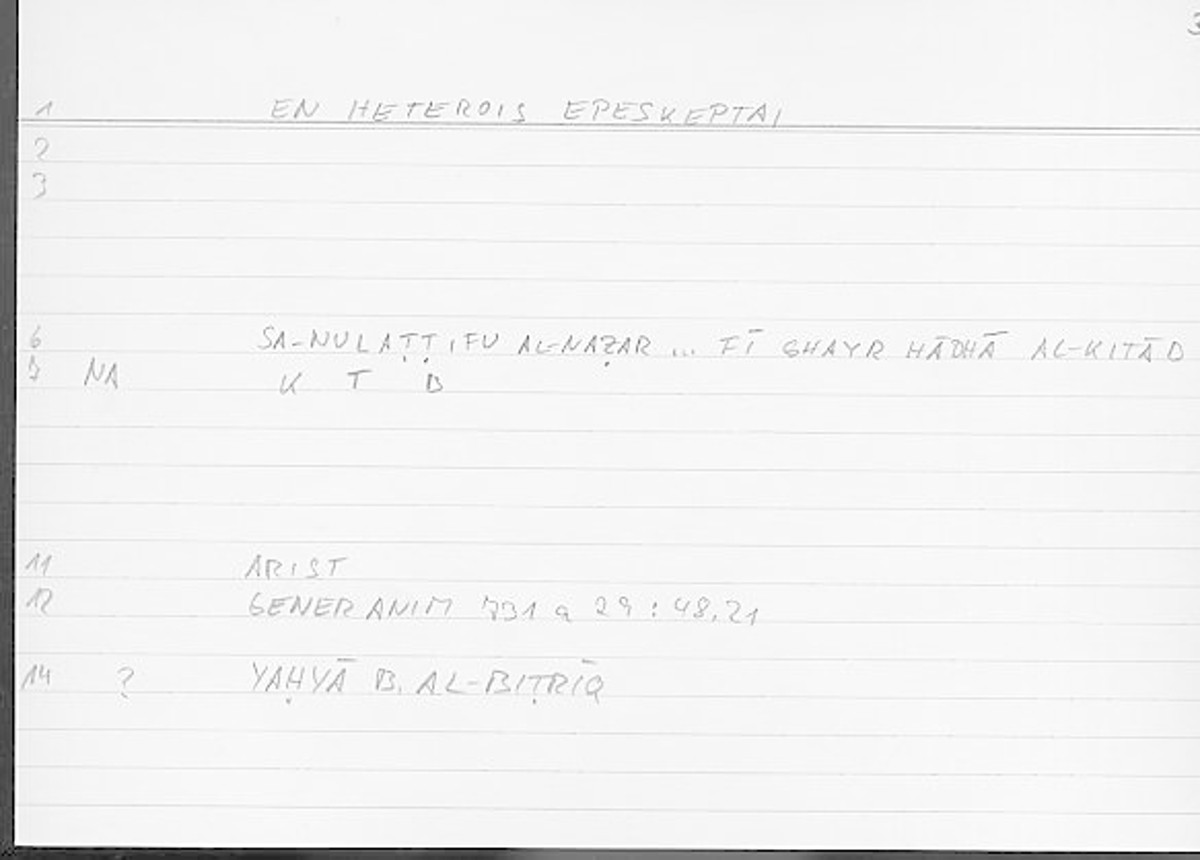 3
1 EN HETEROIS EPESKEPTAI
2
3
6 SA-NULAṬṬIFU AL-NAẒAR ... FĪ GHAYR HĀDHĀ AL-KITĀB
7 NA K T B
11 ARIST
12 GENER ANIM 731 a 29 : 48.21
14 ? YAḤYĀ B. AL-BIṬRĪQ